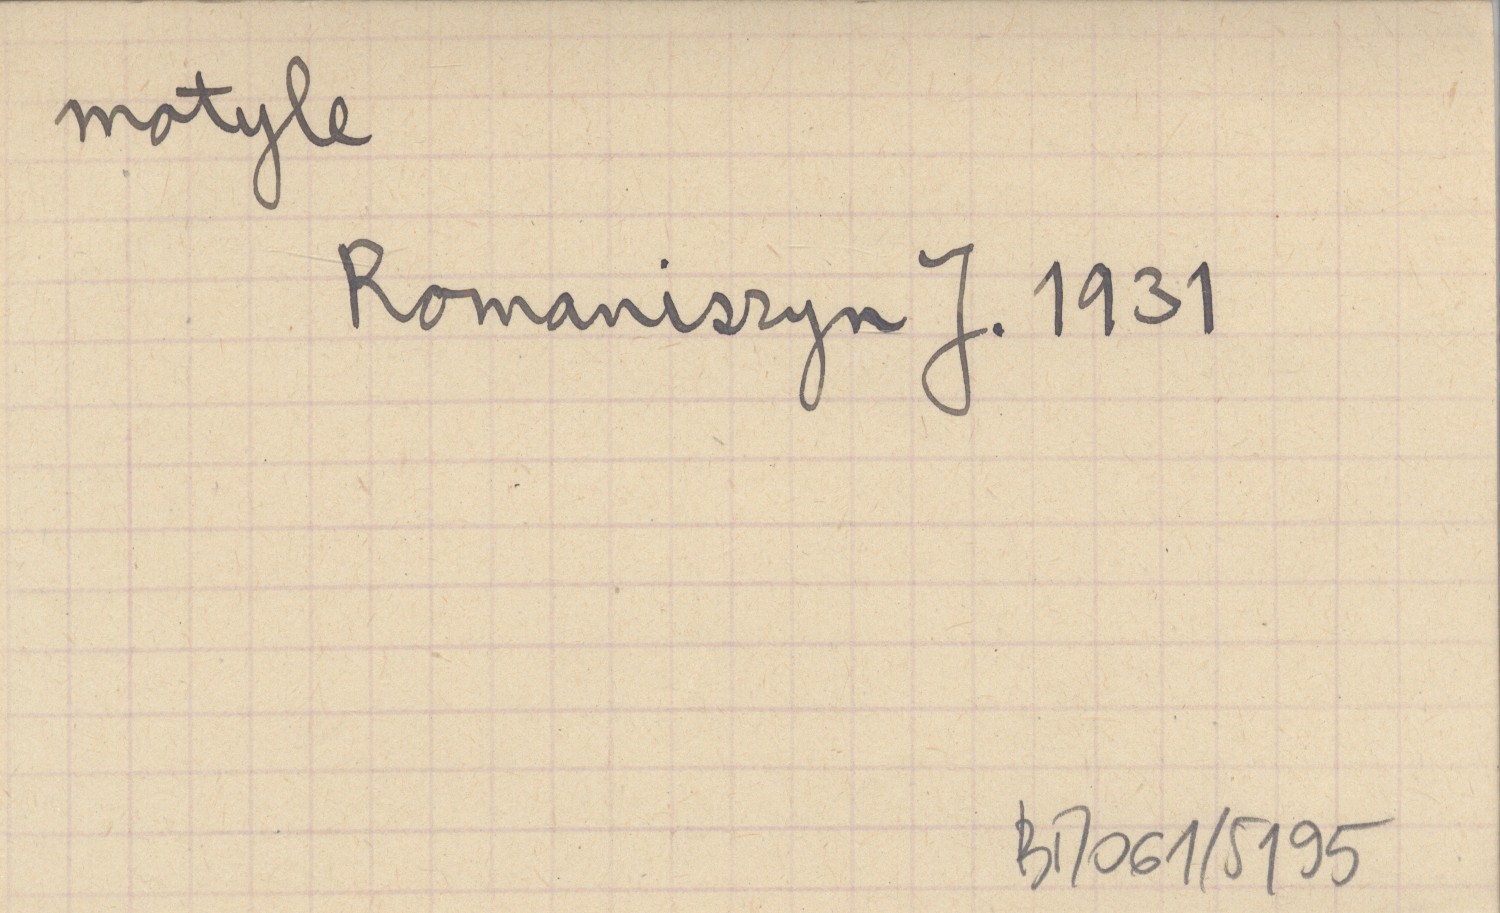 motyle
Romaniszyn J. 1931
BD/061/5195